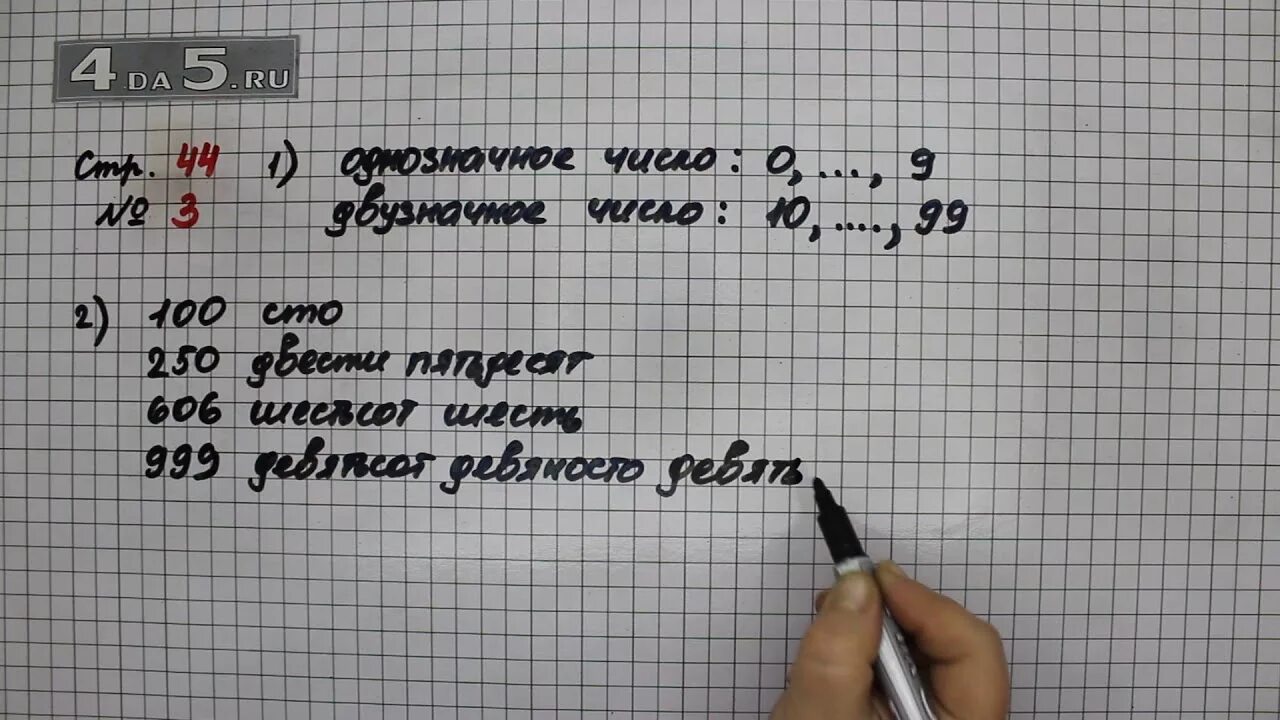 4DA5.RU
Стр. 44 1) однозначное число: 0, ..., 9
№ 3 двузначное число: 10, ...., 99
2) 100 сто
250 двести пятьдесят
606 шестьсот шесть
999 девятьсот девяносто девять